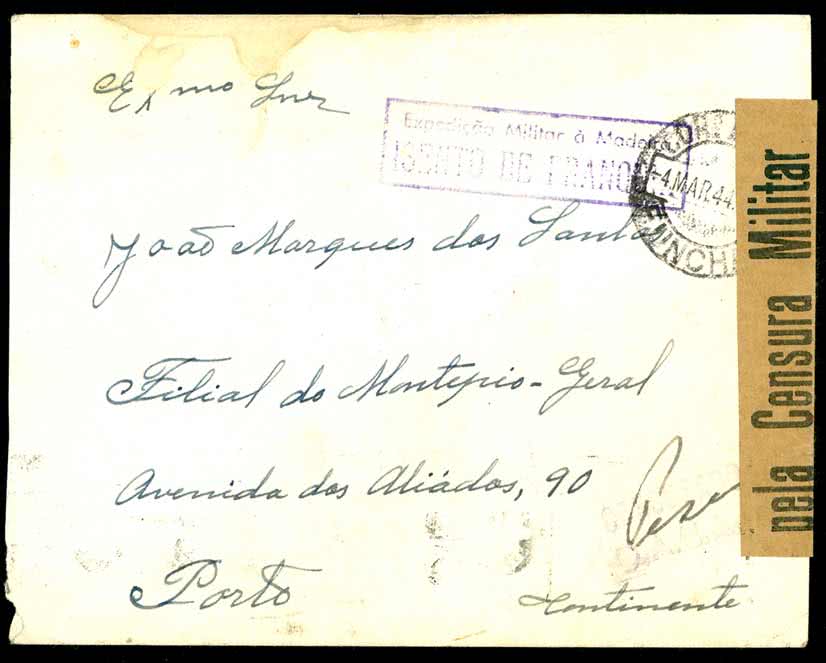 Exmo Snr
Expedição Militar à Madeira
ISENTO DE FRANQUIA
CORREIOS
4.MAR.44
FUNCHAL
João Marques dos Santos
Filial do Montepio-Geral
Avenida dos Aliádos, 90
Porto
Continente
pela Censura Militar